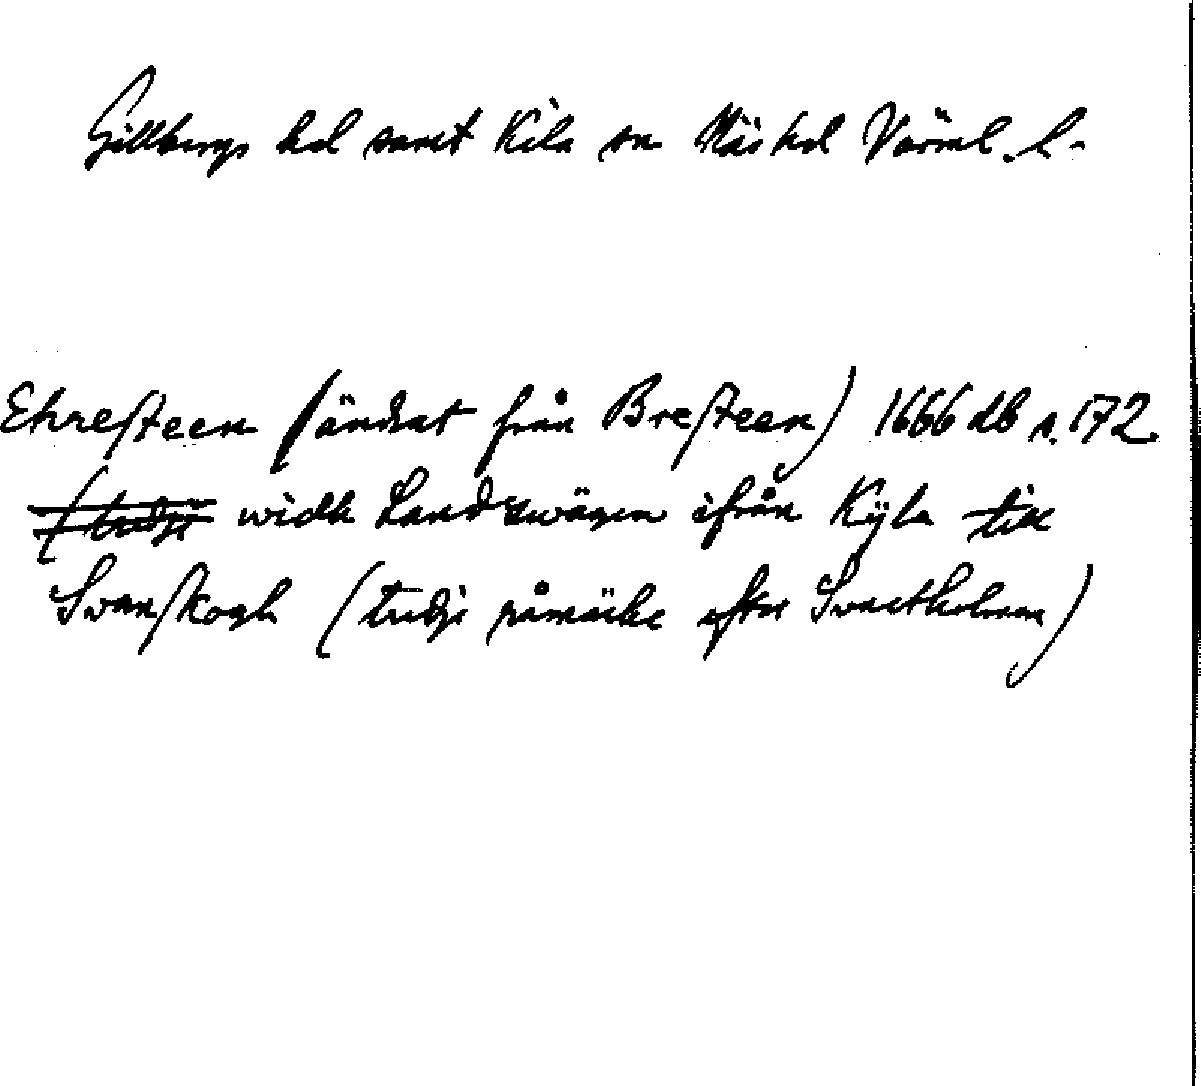 Gillbergs hd samt Kila sn Näs hd Värml. l.
Ehresteen (ändrat från Bresteen) 1666 db s. 172
widh Landzwägen ifrån Kÿla till
Swanskogh (tridje råmärke efter Swartholmen)